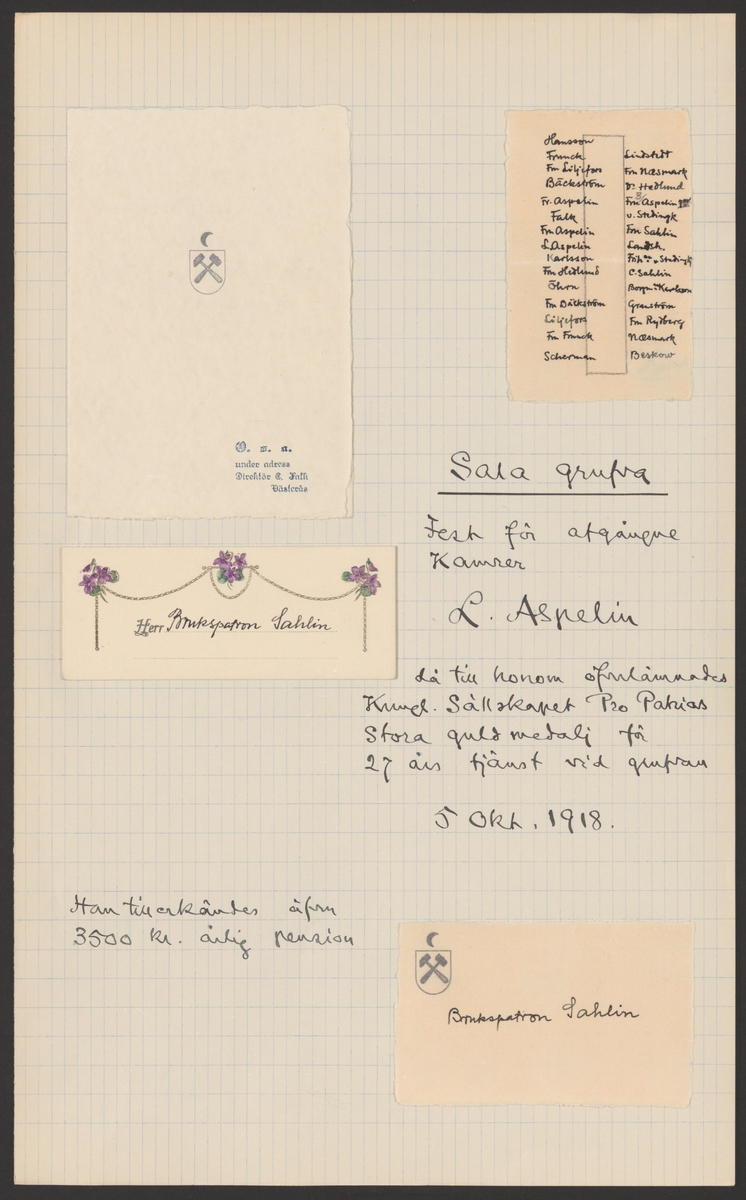 O. s. a.
under adress
Direktör C. Falk
Västerås
Hansson
Franck
Fru Liljefors
Bäckström
Fr. Aspelin
Falk
Fru Aspelin
L Aspelin
Karlsson
Fru Hedlund
Öhrn
Fru Bäckström
Liljefors
Fru Franck
Scherman
Lindstedt
Fru Næsmark
Dr Hedlund
Fru Aspelin
v. Stedingk
Fru Sahlin
Landsh.
Frih v. Stedingk
C. Sahlin
Borgm. Karlson
Granström
Fru Rydberg
Næsmark
Beskow
Sala grufva
Fest för afgångne
Kamrer
L. Aspelin
Herr Brukspatron Sahlin
då till honom öfverlämnades
Kungl. Sällskapet Pro Patrias
Stora guldmedalj för
27 års tjänst vid grufvan
5 Okt. 1918.
Han tillerkändes äfven
3500 kr. årlig pension
Brukspatron Sahlin